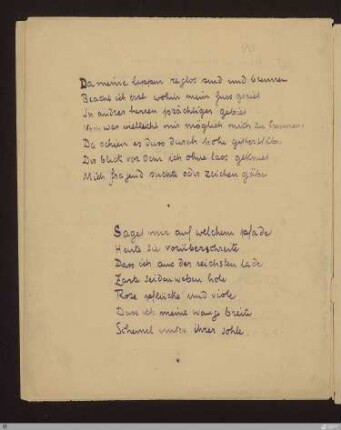 Da meine lippen reglos sind und brennen
Beacht ich erst wohin mein fuss geriet
In andrer herren prächtiges gebiet
Noch war vielleicht mir möglich mich zu trennen
Da schien es dass durch hohe gitterstäbe
Der blick vor dem ich ohne lass gekniet
Mich fragend suchte oder zeichen gäbe
Saget mir auf welchem pfade
Heute sie vorüberschreite
Dass ich aus der reichsten lade
Zarte seidenweben hole
Rose pflücke und viole
Dass ich meine wange breite
Schemel unter ihrer sohle